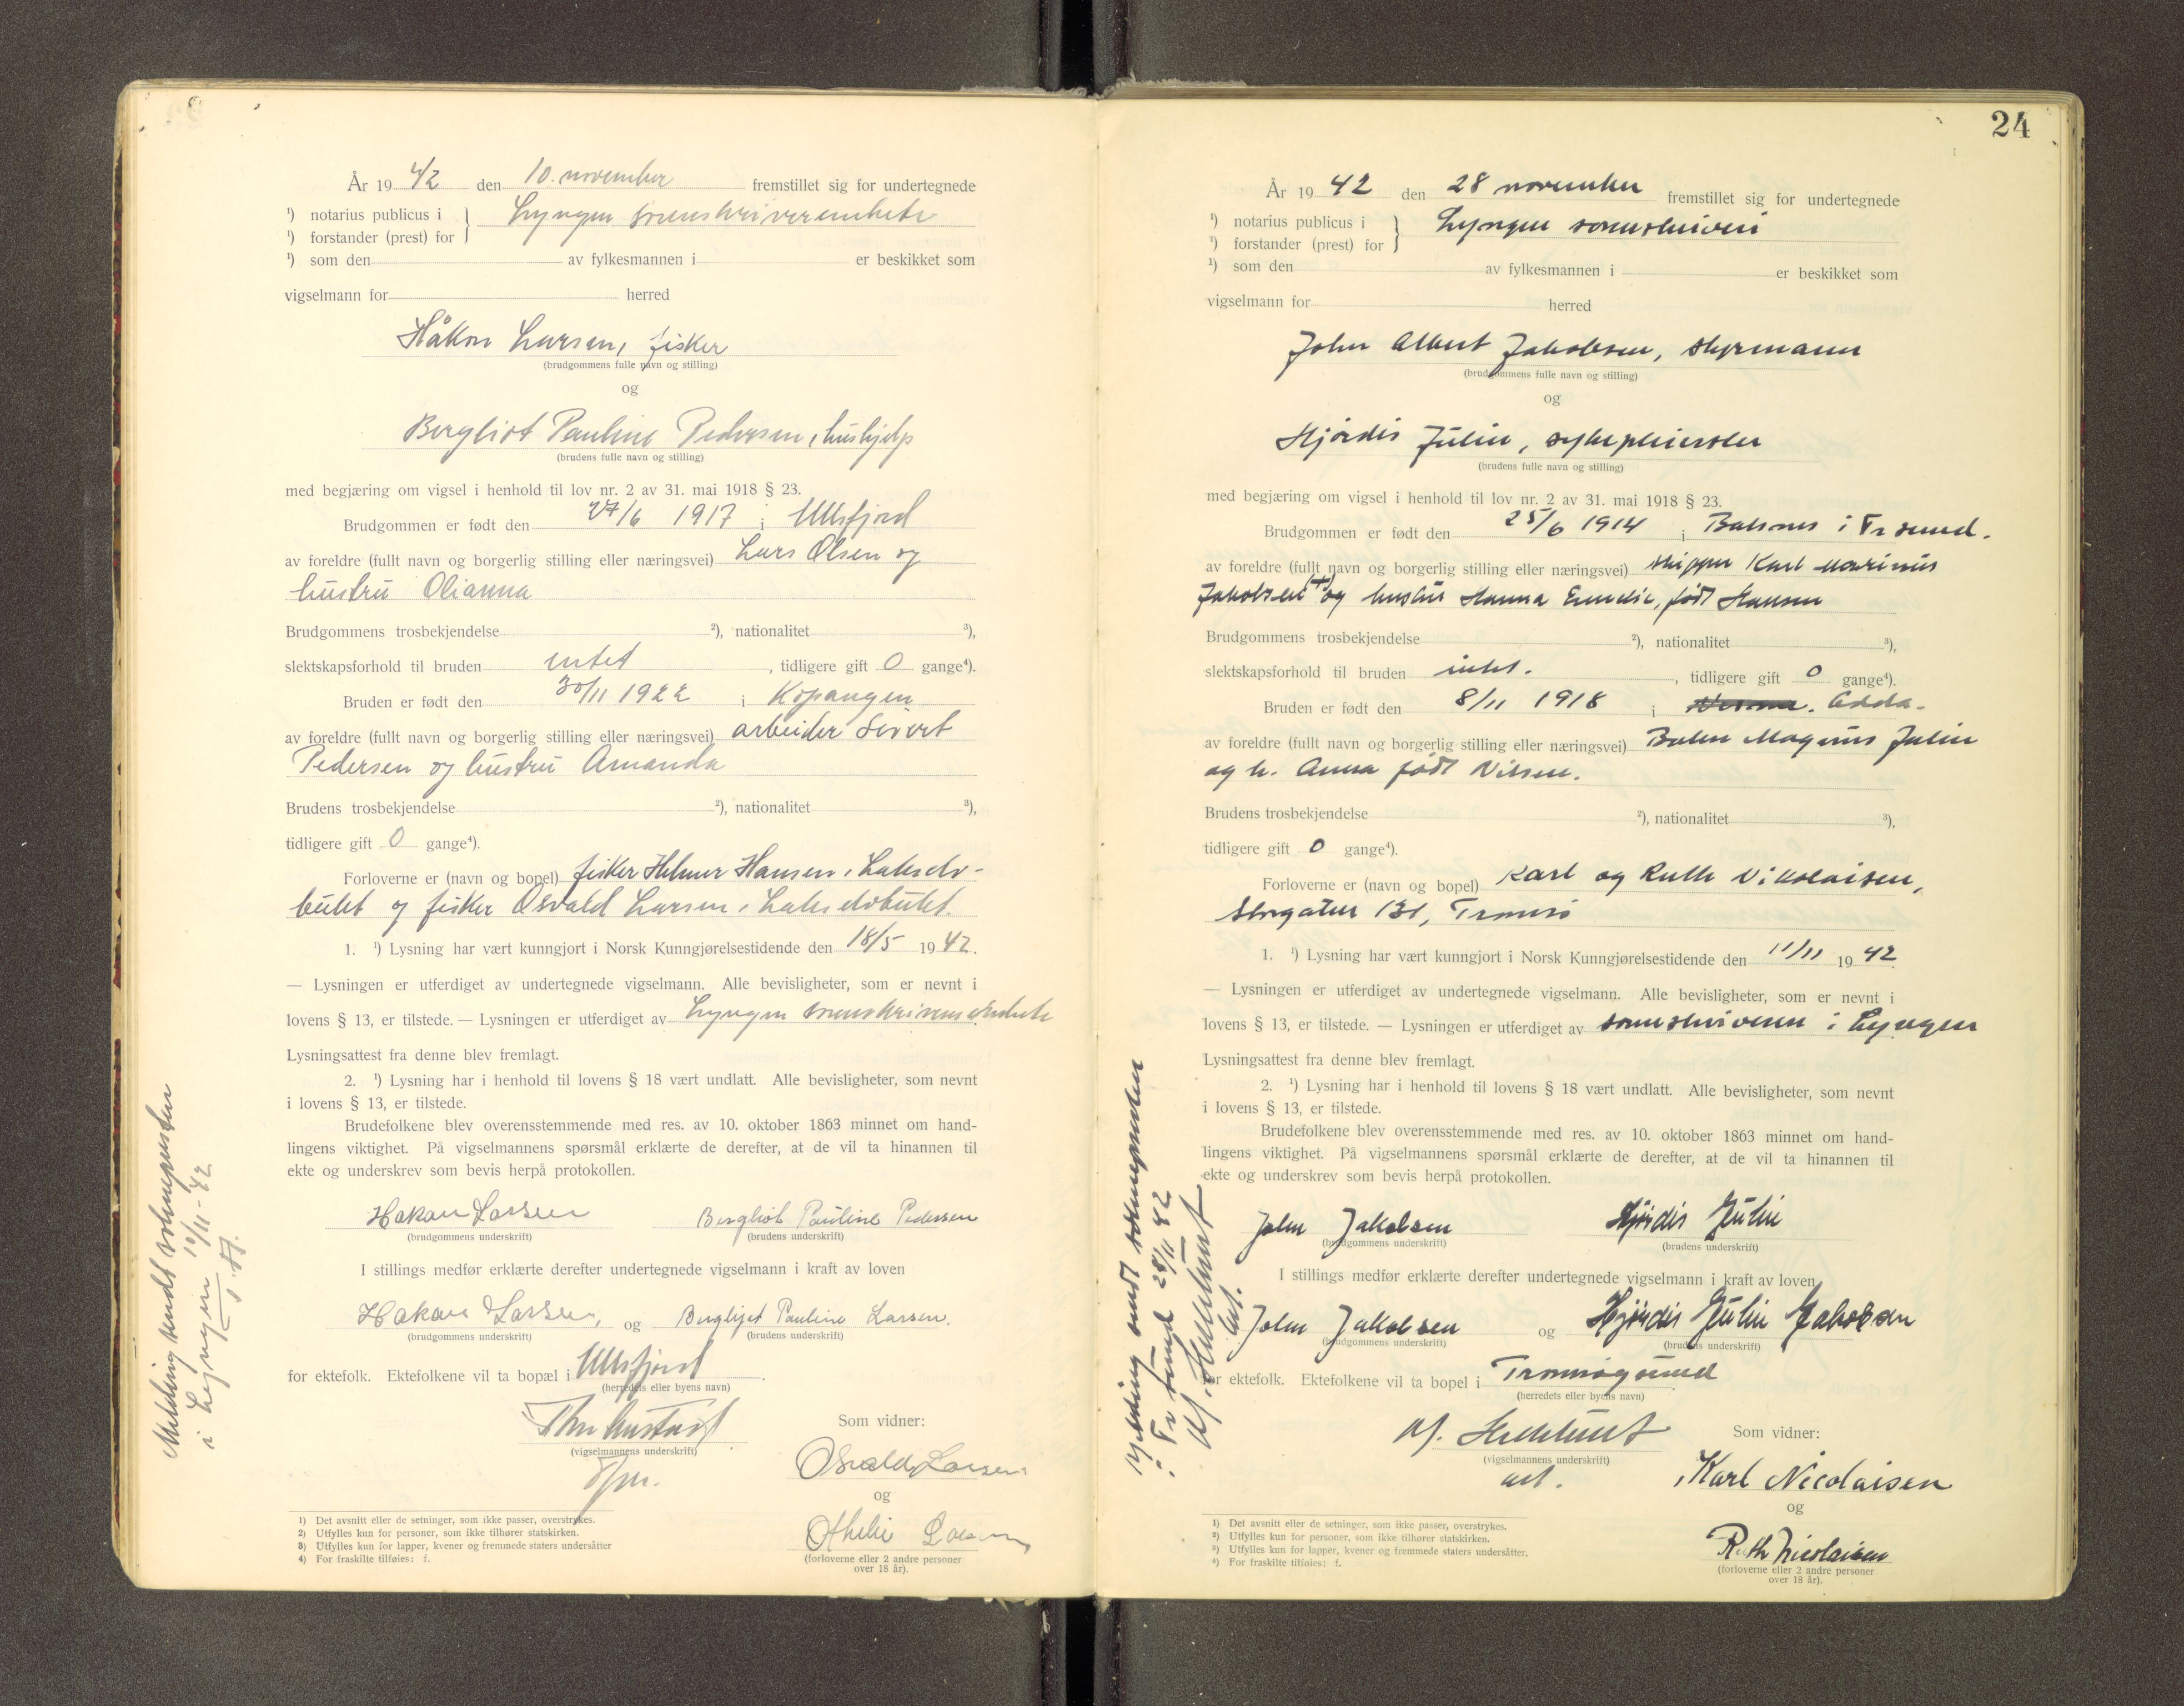 År 1942 den 10. november fremstillet sig for undertegnede
¹) notarius publicus i } Lyngen sorenskriverembete
¹) forstander (prest) for
¹) som den av fylkesmannen i er beskikket som
vigselmann for herred
Håkon Larsen, fisker
(brudgommens fulle navn og stilling)
og
Bergliot Pauline Pedersen, hushjelp
(brudens fulle navn og stilling)
med begjæring om vigsel i henhold til lov nr. 2 av 31. mai 1918 § 23.
Brudgommen er født den 27/6 1917 i Ullsfjord
av foreldre (fullt navn og borgerlig stilling eller næringsvei) Lars Olsen og
hustru Olianna
Brudgommens trosbekjendelse ²), nationalitet ³),
slektskapsforhold til bruden intet, tidligere gift 0 gange⁴).
Bruden er født den 30/11 1922 i Kopangen
av foreldre (fullt navn og borgerlig stilling eller næringsvei) arbeider Sivert
Pedersen og hustru Amanda
Brudens trosbekjendelse ²), nationalitet ³),
tidligere gift 0 gange⁴).
Forloverne er (navn og bopel) fisker Helmer Hansen, Lakselv-
bukt og fisker Osvald Larsen, Lakselvbukt.
1. ¹) Lysning har vært kunngjort i Norsk Kunngjørelsestidende den 18/5 1942.
— Lysningen er utferdiget av undertegnede vigselmann. Alle bevisligheter, som er nevnt i
lovens § 13, er tilstede. — Lysningen er utferdiget av Lyngen sorenskriverembete
Lysningsattest fra denne blev fremlagt.
2. ¹) Lysning har i henhold til lovens § 18 vært undlatt. Alle bevisligheter, som nevnt
i lovens § 13, er tilstede.
Brudefolkene blev overensstemmende med res. av 10. oktober 1863 minnet om hand-
lingens viktighet. På vigselmannens spørsmål erklærte de derefter, at de vil ta hinannen til
ekte og underskrev som bevis herpå protokollen.
Hakon Larsen Bergliot Pauline Pedersen
(brudgommens underskrift) (brudens underskrift)
I stillings medfør erklærte derefter undertegnede vigselmann i kraft av loven
Hakon Larsen, og Bergliot Pauline Larsen.
(brudgommens underskrift) (brudens underskrift)
for ektefolk. Ektefolkene vil ta bopæl i Ullsfjord.
(herredets eller byens navn)
(vigselmannens underskrift)
Som vidner:
Osvald Larsen
og
Larsen
(forloverne eller 2 andre personer
over 18 år).
1) Det avsnitt eller de setninger, som ikke passer, overstrykes.
2) Utfylles kun for personer, som ikke tilhører statskirken.
3) Utfylles kun for lapper, kvener og fremmede staters undersåtter
4) For fraskilte tilføies: f.
Melding sendt soknepresten
i Lyngen 10/11-42
24
År 1942 den 28 november fremstillet sig for undertegnede
¹) notarius publicus i } Lyngen sorenskriveri
¹) forstander (prest) for
¹) som den av fylkesmannen i er beskikket som
vigselmann for herred
John Albert Jakobsen, styrmann
(brudgommens fulle navn og stilling)
og
Hjørdis Julin, sykepleierske
(brudens fulle navn og stilling)
med begjæring om vigsel i henhold til lov nr. 2 av 31. mai 1918 § 23.
Brudgommen er født den 25/6 1914 i Balsnes i Tr.sund.
av foreldre (fullt navn og borgerlig stilling eller næringsvei) skipper Karl Marinius
Jakobsen (+) og hustru Hanna Emelie, født Hansen
Brudgommens trosbekjendelse ²), nationalitet ³),
slektskapsforhold til bruden intet., tidligere gift 0 gange⁴).
Bruden er født den 8/11 1918 i Adda.
av foreldre (fullt navn og borgerlig stilling eller næringsvei) Magnus Julin
og h. Anna født Nissen.
Brudens trosbekjendelse ²), nationalitet ³),
tidligere gift 0 gange⁴).
Forloverne er (navn og bopel) Karl og Ruth Nikolaisen,
Storgaten 131, Tromsø
1. ¹) Lysning har vært kunngjort i Norsk Kunngjørelsestidende den 11/11 1942
— Lysningen er utferdiget av undertegnede vigselmann. Alle bevisligheter, som er nevnt i
lovens § 13, er tilstede. — Lysningen er utferdiget av sorenskriveren i Lyngen
Lysningsattest fra denne blev fremlagt.
2. ¹) Lysning har i henhold til lovens § 18 vært undlatt. Alle bevisligheter, som nevnt
i lovens § 13, er tilstede.
Brudefolkene blev overensstemmende med res. av 10. oktober 1863 minnet om hand-
lingens viktighet. På vigselmannens spørsmål erklærte de derefter, at de vil ta hinannen til
ekte og underskrev som bevis herpå protokollen.
John Jakobsen Hjørdis Julin
(brudgommens underskrift) (brudens underskrift)
I stillings medfør erklærte derefter undertegnede vigselmann i kraft av loven
John Jakobsen og Hjørdis Julin Jakobsen
(brudgommens underskrift) (brudens underskrift)
for ektefolk. Ektefolkene vil ta bopel i Tromsøysund
(herredets eller byens navn)
(vigselmannens underskrift)
Som vidner:
Karl Nicolaisen
og
Ruth Nicolaisen
(forloverne eller 2 andre personer
over 18 år).
¹) Det avsnitt eller de setninger, som ikke passer, overstrykes.
²) Utfylles kun for personer, som ikke tilhører statskirken.
³) Utfylles kun for lapper, kvener og fremmede staters undersåtter.
⁴) For fraskilte tilføies: f.
Melding sendt soknepresten
i Tr.sund 28/11 42